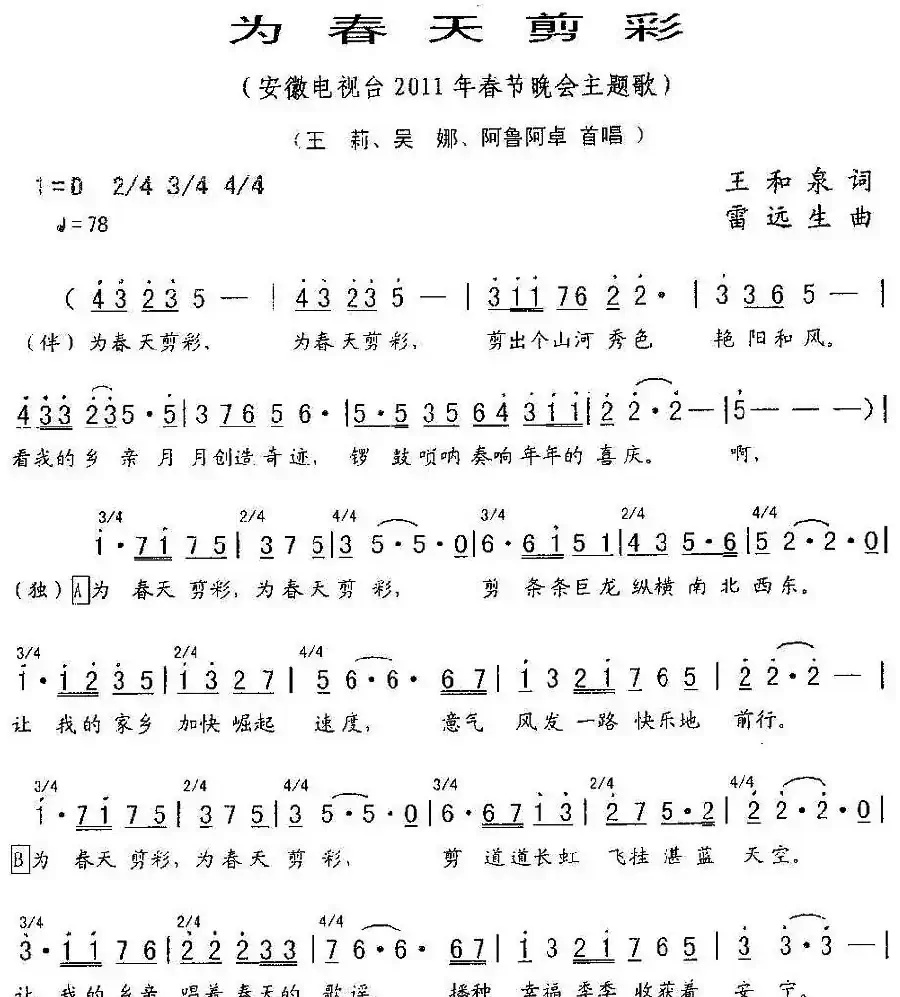 为春天剪彩
（安徽电视台2011年春节晚会主题歌）
（王 莉、吴 娜、阿鲁阿卓 首唱）
1=D 2/4 3/4 4/4
王和泉词
♩=78
雷远生曲
( 4 3 2 3 5 — | 4 3 2 3 5 — | 3 1 1 7 6 2 2· | 3 3 6 5 — |
（伴）为春天剪彩、 为春天剪彩， 剪出个山河秀色 艳阳和风。
4 3 3 2 3 5· 5 | 3 7 6 5 6· | 5· 5 3 5 6 4 3 1 1 | 2 2· 2 — | 5 — — — ) |
看我的乡亲月月创造奇迹， 锣鼓唢呐奏响年年的喜庆。 啊，
3/4 2/4 4/4 3/4 2/4 4/4
1· 7 1 7 5 | 3 7 5 | 3 5· 5· 0 | 6· 6 1 5 1 | 4 3 5· 6 | 5 2· 2· 0 |
（独）A 为 春天剪彩，为春天剪彩， 剪 条条巨龙纵横南北西东。
3/4 2/4 4/4
1· 1 2 3 5 | 1 3 2 7 | 5 6· 6· 6 7 | 1 3 2 1 7 6 5 | 2 2· 2 — |
让 我的家乡 加快崛起 速度， 意气 风发一路快乐地 前行。
3/4 2/4 4/4 3/4 2/4 4/4
1· 7 1 7 5 | 3 7 5 | 3 5· 5· 0 | 6· 6 7 1 3 | 2 7 5· 2 | 2 2· 2· 0 |
B 为 春天剪彩，为春天剪彩， 剪 道道长虹 飞挂湛蓝 天空。
3/4 2/4 4/4
3· 1 1 7 6 | 2 2 2 3 3 | 7 6· 6· 6 7 | 1 3 2 1 7 6 5 | 3 3· 3 — |
让 我的乡亲 唱着春天的 歌谣， 播种 幸福季季收获着 安宁。